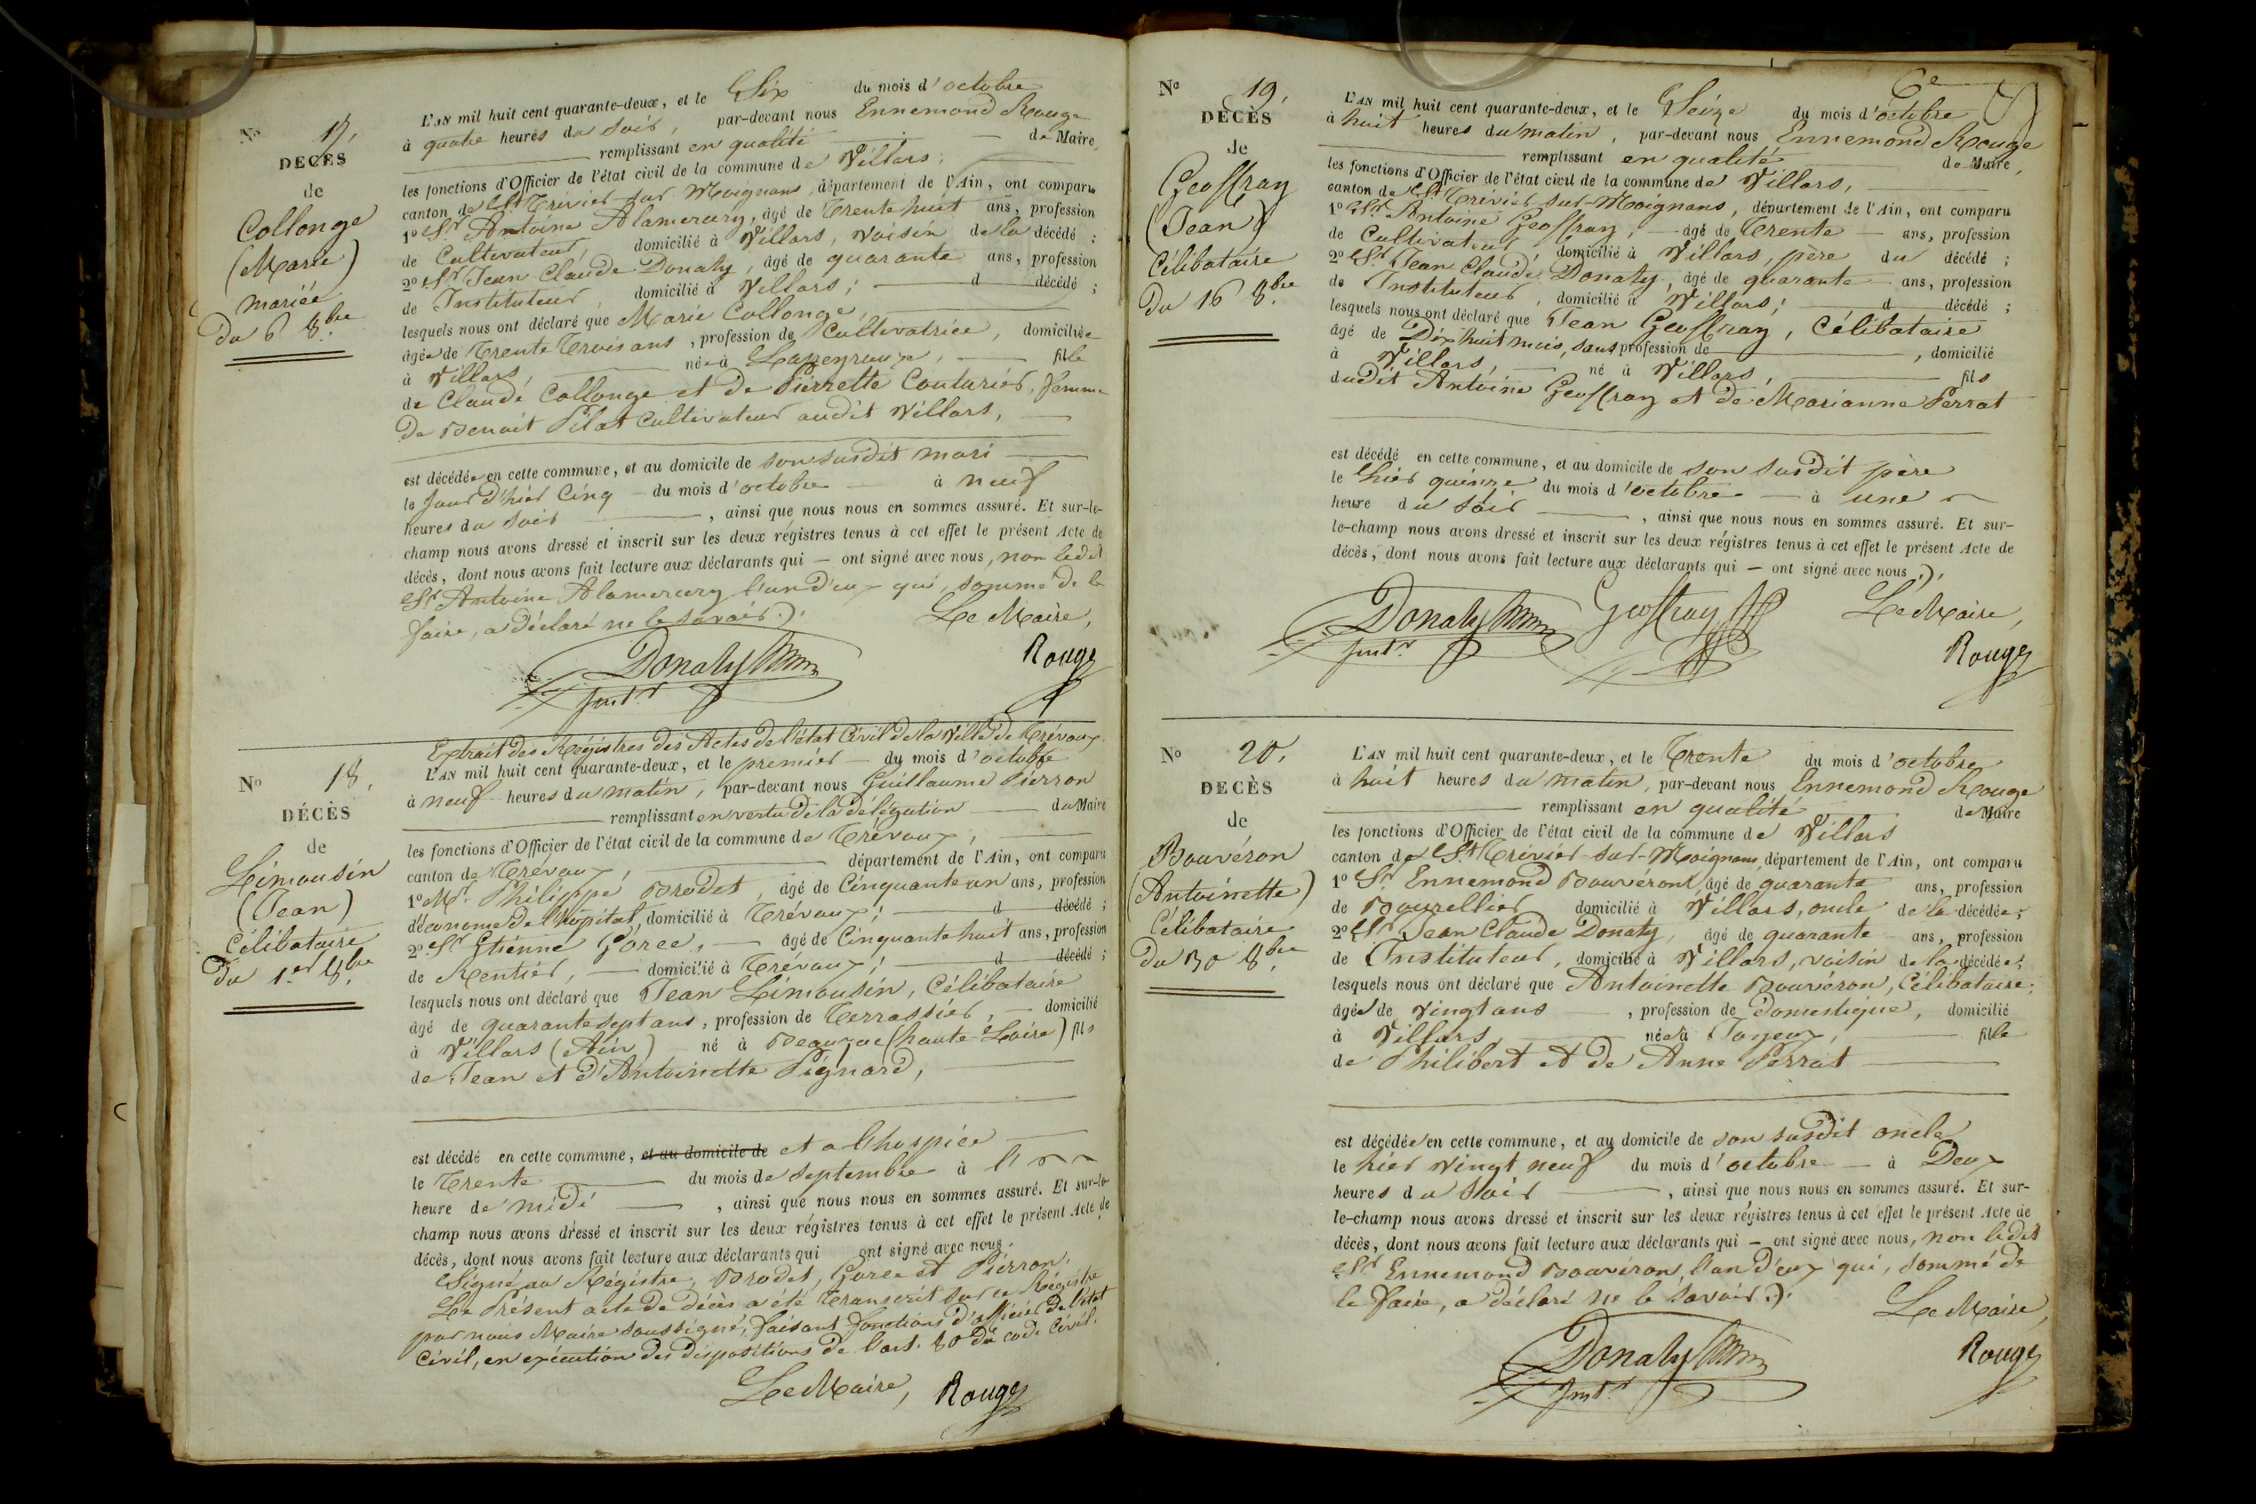 N° 17.
DÉCÈS
de
Collonge
(Marie)
mariée
Du 6 8.bre
L'AN mil huit cent quarante-deux, et le Six du mois d'octobre
à quatre heures du soir, par-devant nous Ennemond Rouge
remplissant en qualité de Maire,
les fonctions d'Officier de l'état civil de la commune de Villars,
canton de St Trivier sur Moignans, département de l'Ain, ont comparu
1° Sr Antoine Alamercery, âgé de Trente huit ans, profession
de Cultivateur, domicilié à Villars, voisin de la décédé ;
2° Sr Jean Claude Donaty, âgé de quarante ans, profession
de Instituteur, domicilié à Villars; d décédé ;
lesquels nous ont déclaré que Marie Collonge,
âgée de Trente Trois ans, profession de Cultivatrice, domiciliée
à Villars, née à Lapeyrouze, fille
de Claude Collonge et de Pierrette Couturier, femme
de Benoit Pilat Cultivateur audit Villars,
est décédée en cette commune, et au domicile de son susdit mari
le Jour d'hier Cinq du mois d'octobre à neuf
heures du soir, ainsi que nous nous en sommes assuré. Et sur-le-
champ nous avons dressé et inscrit sur les deux régistres tenus à cet effet le présent Acte de
décès, dont nous avons fait lecture aux déclarants qui – ont signé avec nous, non ledit
Sr Antoine Alamercery l'un d'eux qui, sommé de le
faire, a déclaré ne le savoir.
Le Maire,
Donaty Rouge
Instr
N° 18.
DÉCÈS
de
Limousin
(Jean)
Célibataire
Du 1.er 8.bre
Extrait des Régistres des Actes de l'état Civil de la Ville de Trévoux
L'AN mil huit cent quarante-deux, et le premier du mois d'octobre
à neuf heures du matin, par-devant nous Guillaume Pierron
remplissant en vertu de la délégation du Maire
les fonctions d'Officier de l'état civil de la commune de Trévoux,
canton de Trévoux, département de l'Ain, ont comparu
1° Mr. Philippe Brodet, âgé de Cinquante un ans, profession
d'économe de l'hôpital, domicilié à Trévoux; d décédé ;
2° Sr Etienne Goree, âgé de Cinquante huit ans, profession
de Rentier, domicilié à Trévoux; d décédé ;
lesquels nous ont déclaré que Jean Limousin, Célibataire
âgé de quarante sept ans, profession de Terrassier, domicilié
à Villars (Ain) né à Beauzac (haute Loire) fils
de Jean et d'Antoinette Pignard,
est décédé en cette commune, et au domicile de et a l'hospice
le Trente du mois de septembre à l'
heure de midi, ainsi que nous nous en sommes assuré. Et sur-le-
champ nous avons dressé et inscrit sur les deux régistres tenus à cet effet le présent Acte de
décès, dont nous avons fait lecture aux déclarants qui ont signé avec nous.
Signé au Régistre, Brodet, Goree et Pierron.
Le Présent acte de décès a été Transcrit sur ce Régistre
par nous Maire soussigné, faisant fonctions d'officier de l'état
Civil, en exécution des dispositions de l'art. 80 du code Civil.
Le Maire, Rouge
6e
N° 19.
DÉCÈS
de
Geoffray
(Jean)
Célibataire
Du 16 8.bre
L'AN mil huit cent quarante-deux, et le Seize du mois d'octobre
à huit heures du matin, par-devant nous Ennemond Rouge
remplissant en qualité de Maire,
les fonctions d'Officier de l'état civil de la commune de Villars,
canton de St Trivier-sur-Moignans, département de l'Ain, ont comparu
1° Sr Antoine Geoffray, âgé de Trente ans, profession
de Cultivateur, domicilié à Villars, père du décédé ;
2° Sr Jean Claude Donaty, âgé de quarante ans, profession
de Instituteur, domicilié à Villars; d décédé ;
lesquels nous ont déclaré que Jean Geoffray, Célibataire
âgé de Dix huit mois, sans profession de, domicilié
à Villars, né à Villars, fils
dudit Antoine Geoffray et de Marianne Perrat
est décédé en cette commune, et au domicile de son susdit père
le hier quinze du mois d'octobre à une
heure du soir, ainsi que nous nous en sommes assuré. Et sur-
le-champ nous avons dressé et inscrit sur les deux régistres tenus à cet effet le présent Acte de
décès, dont nous avons fait lecture aux déclarants qui – ont signé avec nous.
Donaty Geoffray Le Maire,
Instr Rouge
N° 20.
DÉCÈS
de
Bouvéron
(Antoinette)
Célibataire
Du 30 8.bre
L'AN mil huit cent quarante-deux, et le Trente du mois d'octobre
à huit heures du matin, par-devant nous Ennemond Rouge
remplissant en qualité de Maire
les fonctions d'Officier de l'état civil de la commune de Villars
canton de St Trivier-sur-Moignans, département de l'Ain, ont comparu
1° Sr Ennemond Bouvéron, âgé de quarante ans, profession
de Bourellier domicilié à Villars, oncle de la décédée ;
2° Sr Jean Claude Donaty, âgé de quarante ans, profession
de Instituteur, domicilié à Villars, voisin de la décédée ;
lesquels nous ont déclaré que Antoinette Bouvéron, Célibataire,
âgée de vingt ans, profession de Domestique, domicilié
à Villars, née à Joyeux, fille
de Philibert et de Anne Perrat
est décédée en cette commune, et au domicile de son susdit oncle
le hier vingt neuf du mois d'octobre à Deux
heures du soir, ainsi que nous nous en sommes assuré. Et sur-
le-champ nous avons dressé et inscrit sur les deux régistres tenus à cet effet le présent Acte de
décès, dont nous avons fait lecture aux déclarants qui – ont signé avec nous, non ledit
Sr Ennemond Bouvéron, l'un d'eux qui, sommé de
le faire, a déclaré ne le savoir.
Le Maire,
Donaty Rouge
Instr